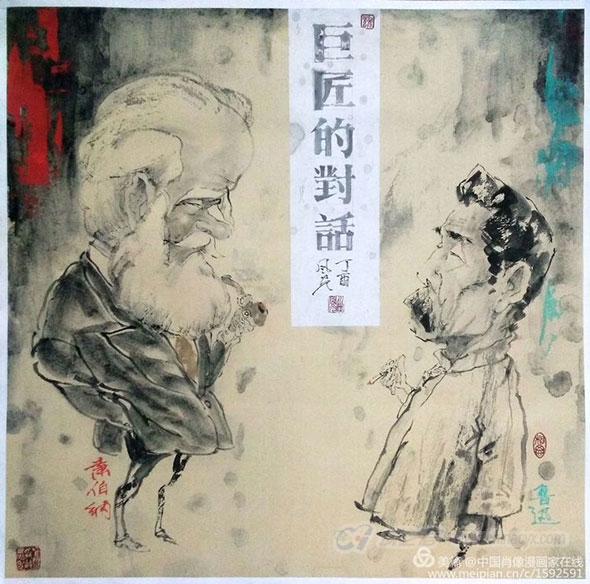 巨匠的對話
丁酉
蕭伯納
魯迅
美篇 @中国肖像漫画家在线
www.meipian.cn/c/1592591